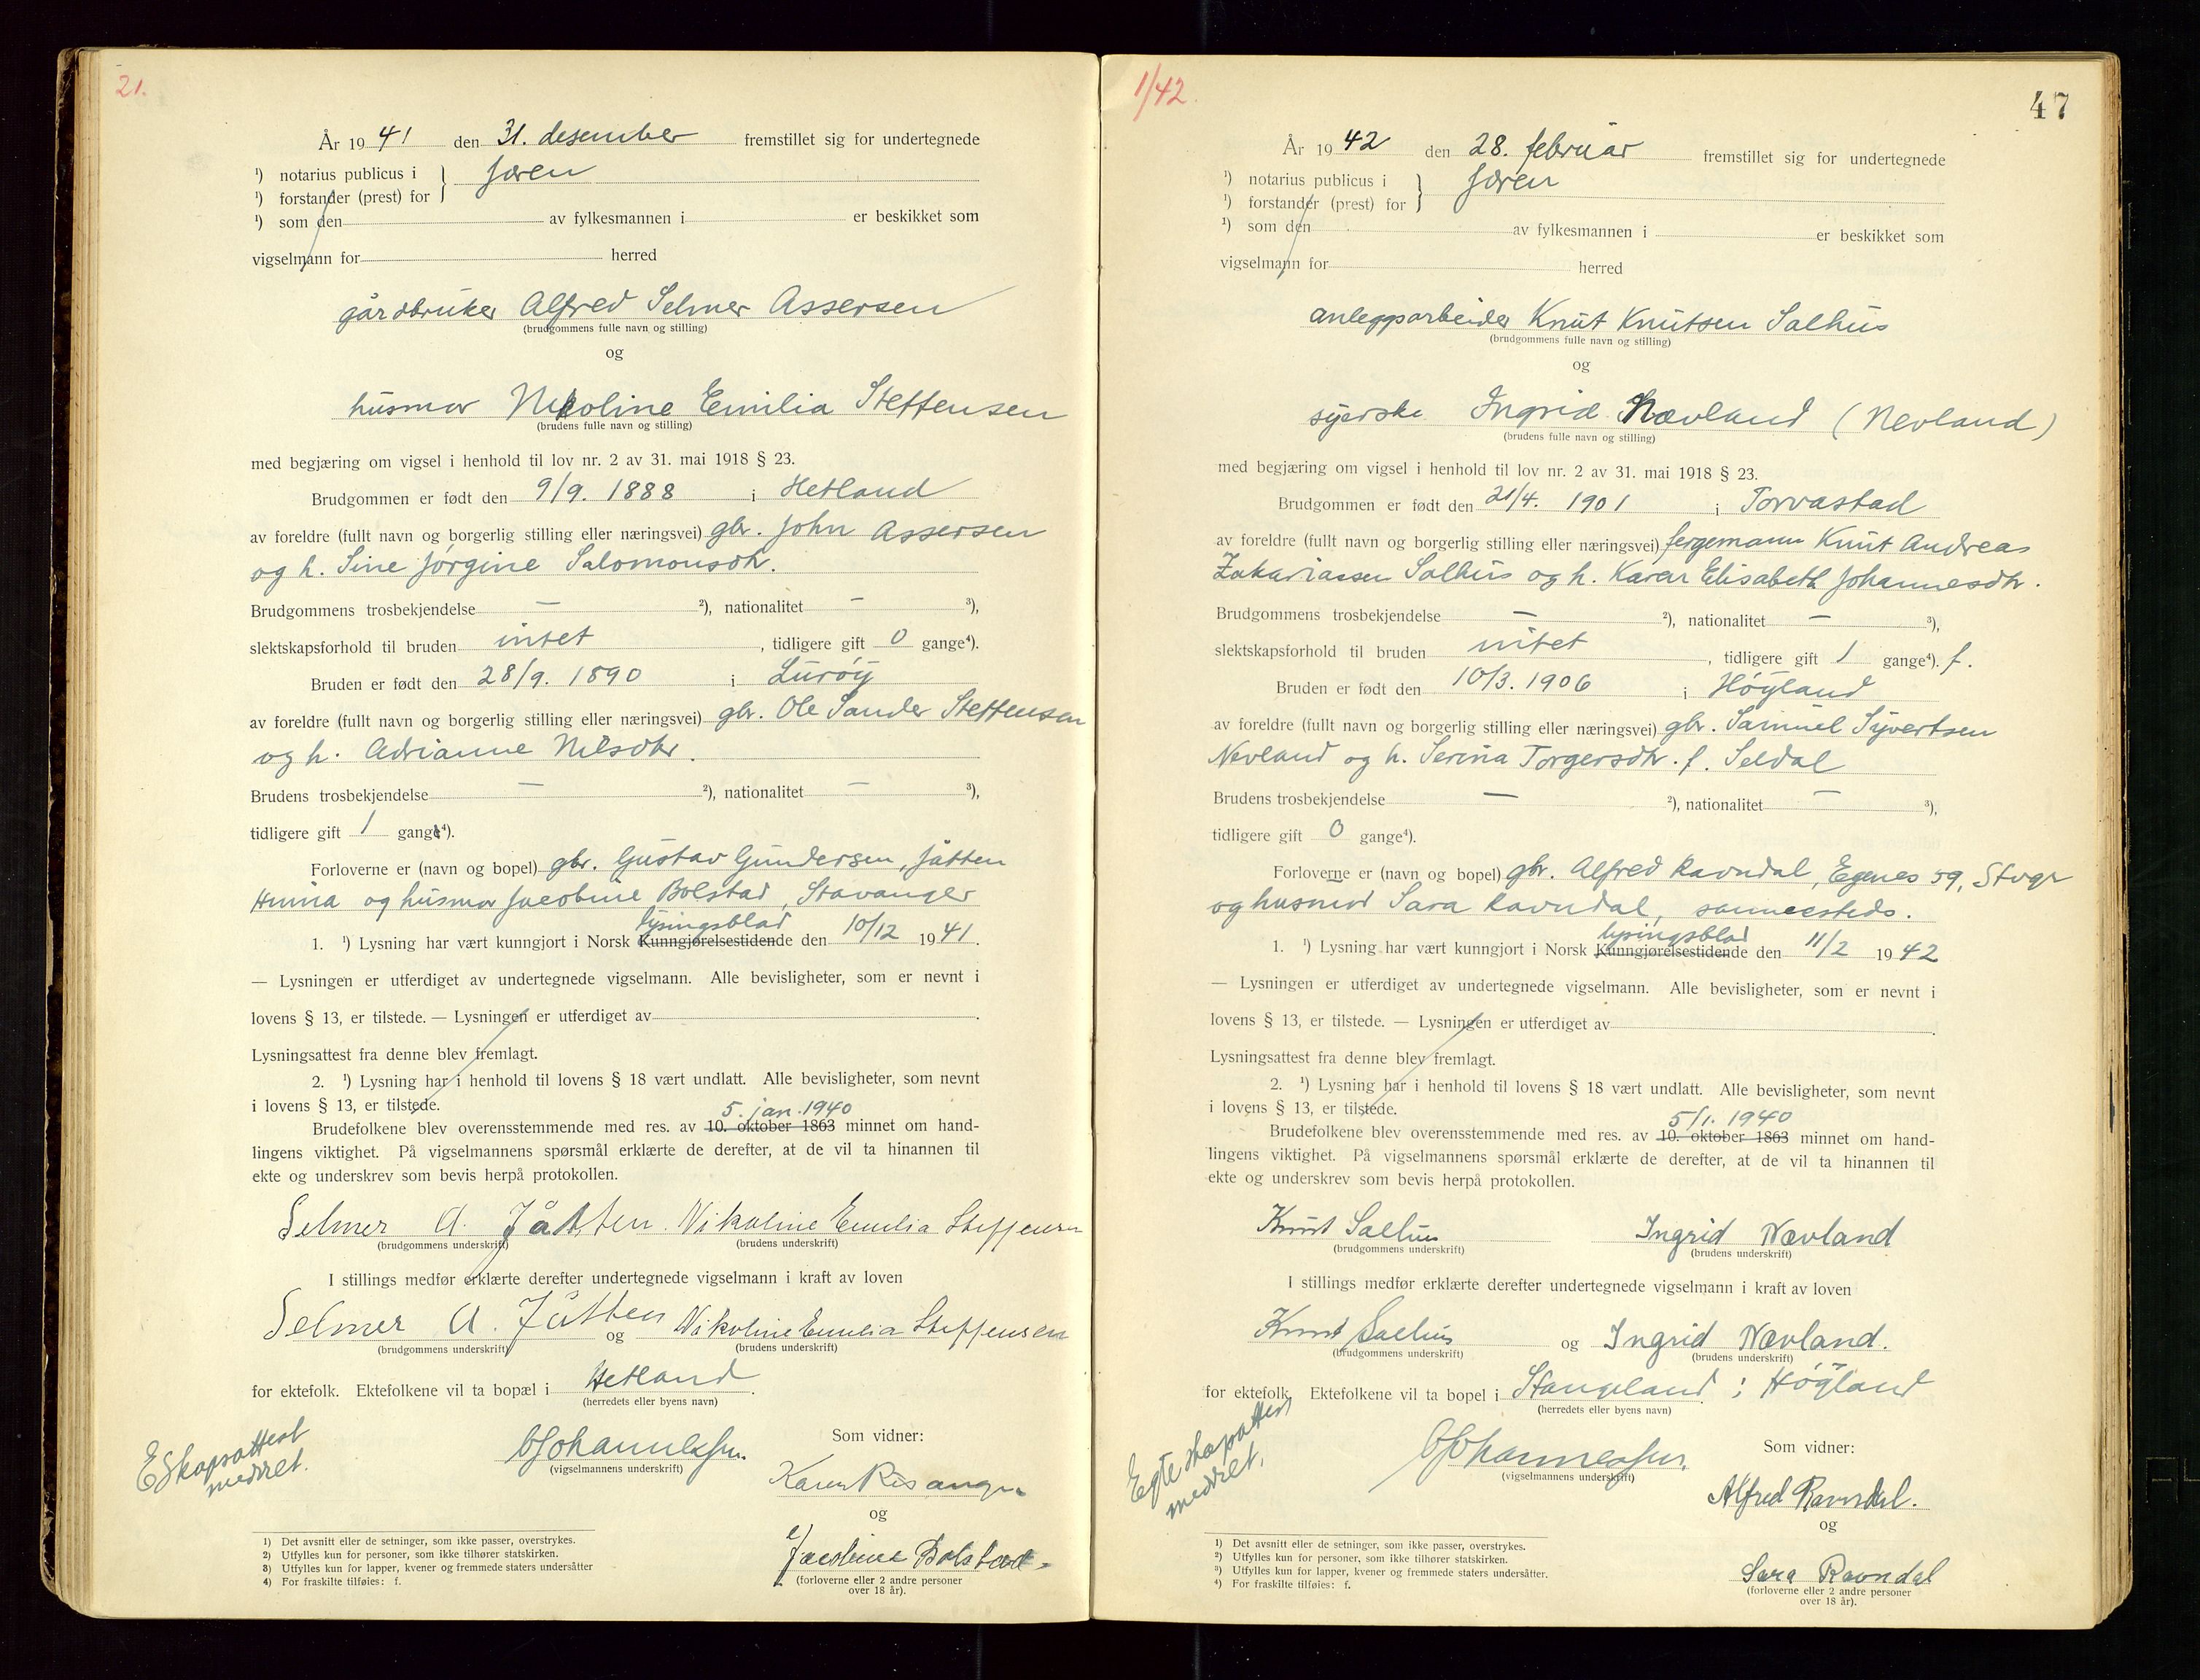 21.
År 19 41 den 31. desember fremstillet sig for undertegnede
¹) notarius publicus i } Jæren
¹) forstander (prest) for
¹) som den av fylkesmannen i er beskikket som
vigselmann for herred
gårdbruker Alfred Selmer Assersen
(brudgommens fulle navn og stilling)
og
husmor Nikoline Emilia Steffensen
(brudens fulle navn og stilling)
med begjæring om vigsel i henhold til lov nr. 2 av 31. mai 1918 § 23.
Brudgommen er født den 9/9. 1888 i Hetland
av foreldre (fullt navn og borgerlig stilling eller næringsvei) gbr. John Assersen
og h. Sine Jørgine Salomonsdtr.
Brudgommens trosbekjendelse — ²), nationalitet — ³),
slektskapsforhold til bruden intet, tidligere gift 0 gange⁴).
Bruden er født den 28/9. 1890 i Lurøy
av foreldre (fullt navn og borgerlig stilling eller næringsvei) gbr. Ole Sander Steffensen
og h. Adrianne Nilsdtr.
Brudens trosbekjendelse — ²), nationalitet — ³),
tidligere gift 1 gang⁴).
Forloverne er (navn og bopel) gbr. Gustav Gundersen, Jåtten
Hinna og husmor Jacobine Bolstad, Stavanger
lysingsblad
1. ¹) Lysning har vært kunngjort i Norsk Kunngjørelsestidende den 10/12 19 41.
— Lysningen er utferdiget av undertegnede vigselmann. Alle bevisligheter, som er nevnt i
lovens § 13, er tilstede. — Lysningen er utferdiget av .
Lysningsattest fra denne blev fremlagt.
2. ¹) Lysning har i henhold til lovens § 18 vært undlatt. Alle bevisligheter, som nevnt
i lovens § 13, er tilstede.
5. jan. 1940
Brudefolkene blev overensstemmende med res. av 10. oktober 1863 minnet om hand-
lingens viktighet. På vigselmannens spørsmål erklærte de derefter, at de vil ta hinannen til
ekte og underskrev som bevis herpå protokollen.
Selmer A. Jåtten. Nikoline Emilia Steffensen
(brudgommens underskrift) (brudens underskrift)
I stillings medfør erklærte derefter undertegnede vigselmann i kraft av loven
Selmer A. Jåtten og Nikoline Emilia Steffensen
(brudgommens underskrift) (brudens underskrift)
for ektefolk. Ektefolkene vil ta bopæl i Hetland.
(herredets eller byens navn)
Ekskapsattest
meddelt.
Johannessen.
(vigselmannens underskrift)
Som vidner:
Karen Risanger
og
Jacobine Bolstad.
(forloverne eller 2 andre personer
over 18 år).
1) Det avsnitt eller de setninger, som ikke passer, overstrykes.
2) Utfylles kun for personer, som ikke tilhører statskirken.
3) Utfylles kun for lapper, kvener og fremmede staters undersåtter
4) For fraskilte tilføies: f.
1/42.
47
År 19 42 den 28. februar fremstillet sig for undertegnede
¹) notarius publicus i } Jæren
¹) forstander (prest) for
¹) som den av fylkesmannen i er beskikket som
vigselmann for herred
anleggsarbeider Knut Knutsen Salhus
(brudgommens fulle navn og stilling)
og
syerske Ingrid Nævland (Nevland)
(brudens fulle navn og stilling)
med begjæring om vigsel i henhold til lov nr. 2 av 31. mai 1918 § 23.
Brudgommen er født den 21/4. 1901 i Torvastad
av foreldre (fullt navn og borgerlig stilling eller næringsvei) fergemann Knut Andreas
Zakariassen Salhus og h. Karen Elisabeth Johannesdtr.
Brudgommens trosbekjendelse — ²), nationalitet — ³),
slektskapsforhold til bruden intet, tidligere gift 1 gange⁴). f.
Bruden er født den 10/3. 1906 i Høyland
av foreldre (fullt navn og borgerlig stilling eller næringsvei) gbr. Samuel Sivertsen
Nevland og h. Serina Torgersdtr. f. Seldal
Brudens trosbekjendelse — ²), nationalitet — ³),
tidligere gift 0 gange⁴).
Forloverne er (navn og bopel) gbr. Alfred Ravndal, Egenes 59, Stvgr
og husmor Sara Ravndal, sammesteds.
lysingsblad
1. ¹) Lysning har vært kunngjort i Norsk Kunngjørelsestidende den 11/2 19 42
— Lysningen er utferdiget av undertegnede vigselmann. Alle bevisligheter, som er nevnt i
lovens § 13, er tilstede. — Lysningen er utferdiget av .
Lysningsattest fra denne blev fremlagt.
2. ¹) Lysning har i henhold til lovens § 18 vært undlatt. Alle bevisligheter, som nevnt
i lovens § 13, er tilstede.
5/1. 1940
Brudefolkene blev overensstemmende med res. av 10. oktober 1863 minnet om hand-
lingens viktighet. På vigselmannens spørsmål erklærte de derefter, at de vil ta hinannen til
ekte og underskrev som bevis herpå protokollen.
Knut Salhus Ingrid Nævland
(brudgommens underskrift) (brudens underskrift)
I stillings medfør erklærte derefter undertegnede vigselmann i kraft av loven
Knut Salhus og Ingrid Nævland.
(brudgommens underskrift) (brudens underskrift)
for ektefolk. Ektefolkene vil ta bopel i Stangeland i Høyland
(herredets eller byens navn)
Egteskapsattest
meddelt.
Johannessen.
(vigselmannens underskrift)
Som vidner:
Alfred Ravndal.
og
Sara Ravndal
(forloverne eller 2 andre personer
over 18 år).
1) Det avsnitt eller de setninger, som ikke passer, overstrykes.
2) Utfylles kun for personer, som ikke tilhører statskirken.
3) Utfylles kun for lapper, kvener og fremmede staters undersåtter.
4) For fraskilte tilføies: f.